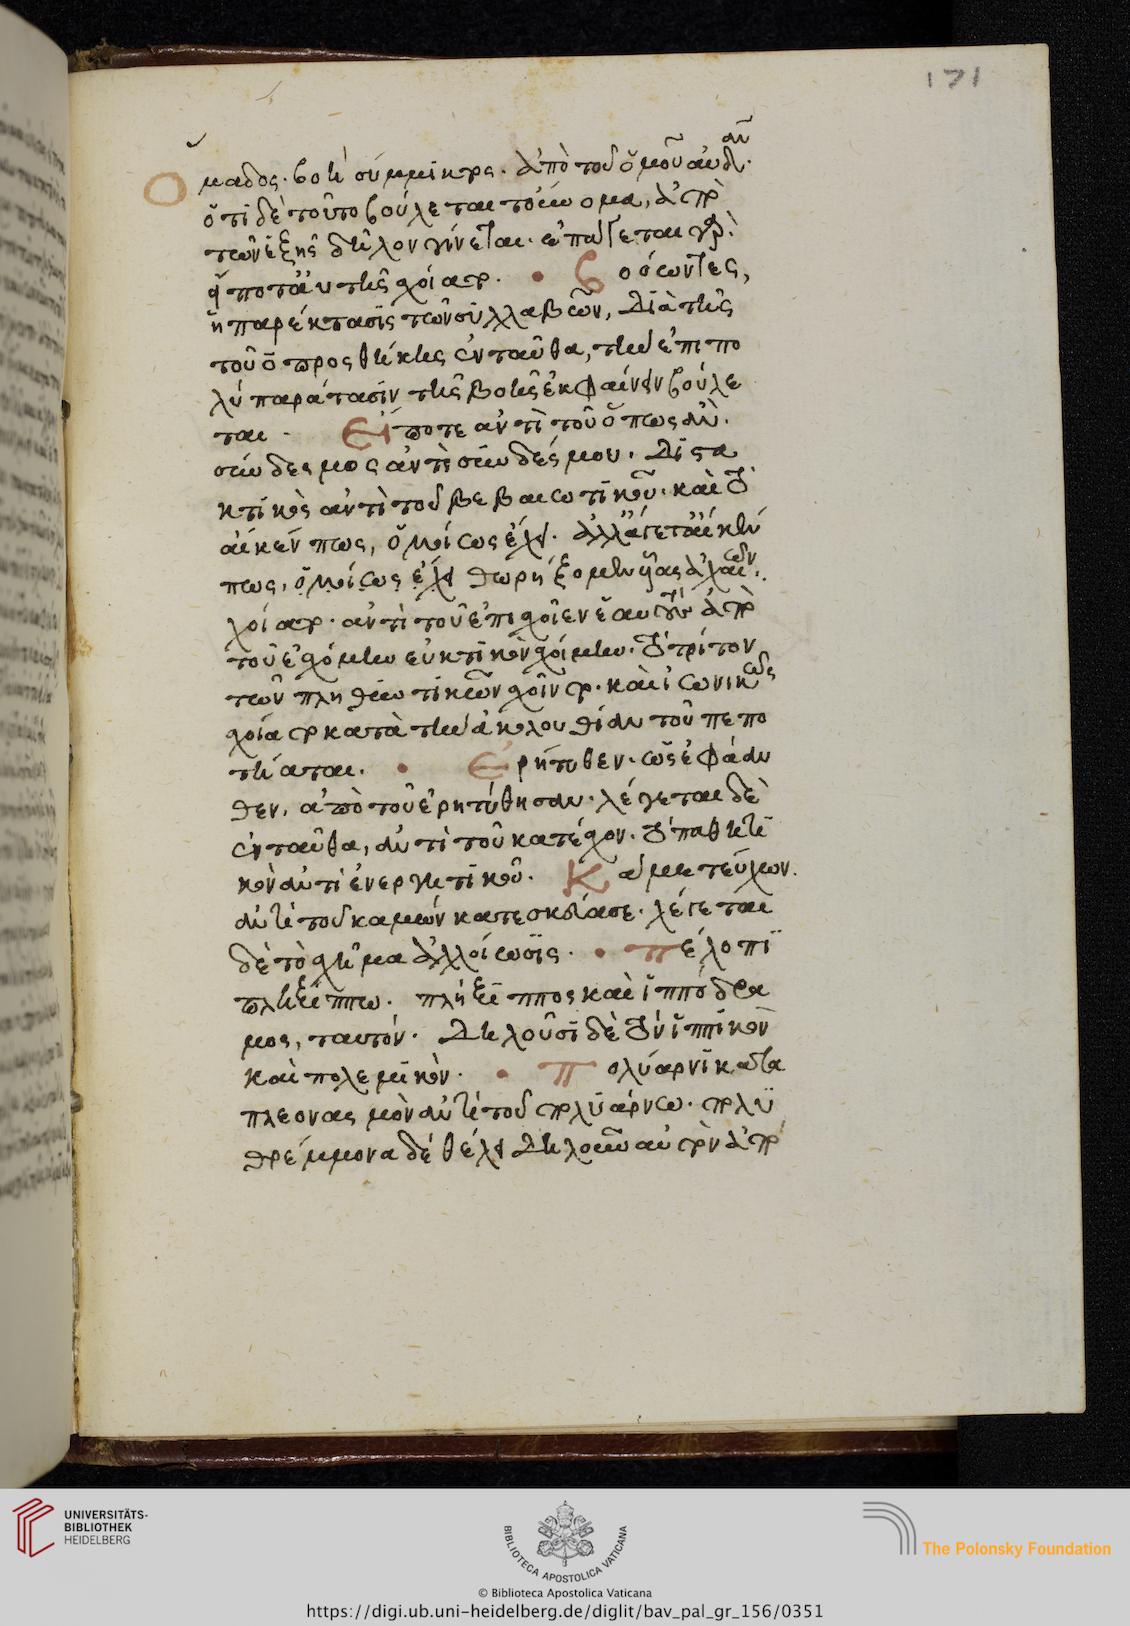 171
Ὅμαδος. βοὴ σύμμικτος. ἀπὸ τοῦ ὁμοῦ αὐδᾶν.
ὅτι δὲ τοῦτο βούλεται τὸ ὄνομα, ἀπὸ
τῶν ἑξῆς δῆλον γίνεται. ἐπάγεται γάρ.
Βοόωντες,
ἡ παρέκτασις τῶν συλλαβῶν, διὰ τῆς
τοῦ ο προσθήκης ἐνταῦθα, τὴν ἐπιπο
λὺ παράτασιν τῆς βοῆς ἐκφαίνειν βούλε
ται. Εἴ ποτε ἀντὶ τοῦ ὅπως ἂν.
σύνδεσμος ἀντὶ συνδέσμου. διστα
κτικὸς ἀντὶ τοῦ βεβαιωτικοῦ. καὶ τὸ
αἴ κέν πως, ὁμοίως ἔχει. ἀλλ' ἄγετ' αἴ κέν
πως, ὁμοίως ἔχει θωρήξομεν υἷας ἀχαιῶν.
τοῦ ἐχόμην εὐκτικὸν χοίμην. τὸ τρίτον
τῶν πληθυντικῶν χοῖντο. καὶ ἰωνικῶς
χοίατο κατὰ τὴν ἀκολουθίαν τοῦ πεπο
ιέαται. Ἐρήτυθεν. ὡς ἐφάαν
θεν, ἀπὸ τοῦ ἐρητύθησαν. λέγεται δὲ
ἐνταῦθα, ἀντὶ τοῦ κατέχον. τὸ παθητι
κὸν ἀντὶ ἐνεργητικοῦ. Κάμε τεύχων.
ἀντὶ τοῦ καμὼν κατεσκεύασε. λέγεται
δὲ τὸ σχῆμα ἀλλοίωσις. Πέλοπι
πληξίππω. πλήξιππος καὶ ἱππόδα
μος, ταυτόν. δηλοῦσι δὲ τὸν ἱππικὸν
καὶ πολεμικὸν. Πολύαρνι κατὰ
πλεονασμὸν ἀντὶ τοῦ πολυάρνω. πολυ
θρέμμονα δὲ θέλει δηλοῦν αὐτὸν ἀπὸ
UNIVERSITÄTS-
BIBLIOTHEK
HEIDELBERG
BIBLIOTECA APOSTOLICA VATICANA
The Polonsky Foundation
© Biblioteca Apostolica Vaticana
https://digi.ub.uni-heidelberg.de/diglit/bav_pal_gr_156/0351